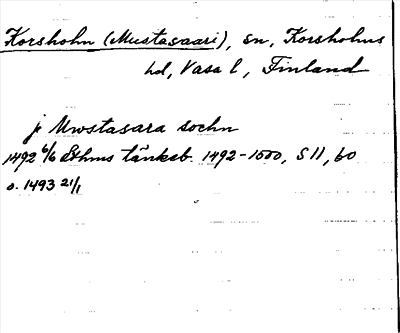 Korsholm (Mustasaari), sn, Korsholms
hd, Vasa l, Finland
j Mwstasara sochn
1492 6/6 Sthms tänkeb. 1492-1500, S 11, 60
o. 1493 21/1